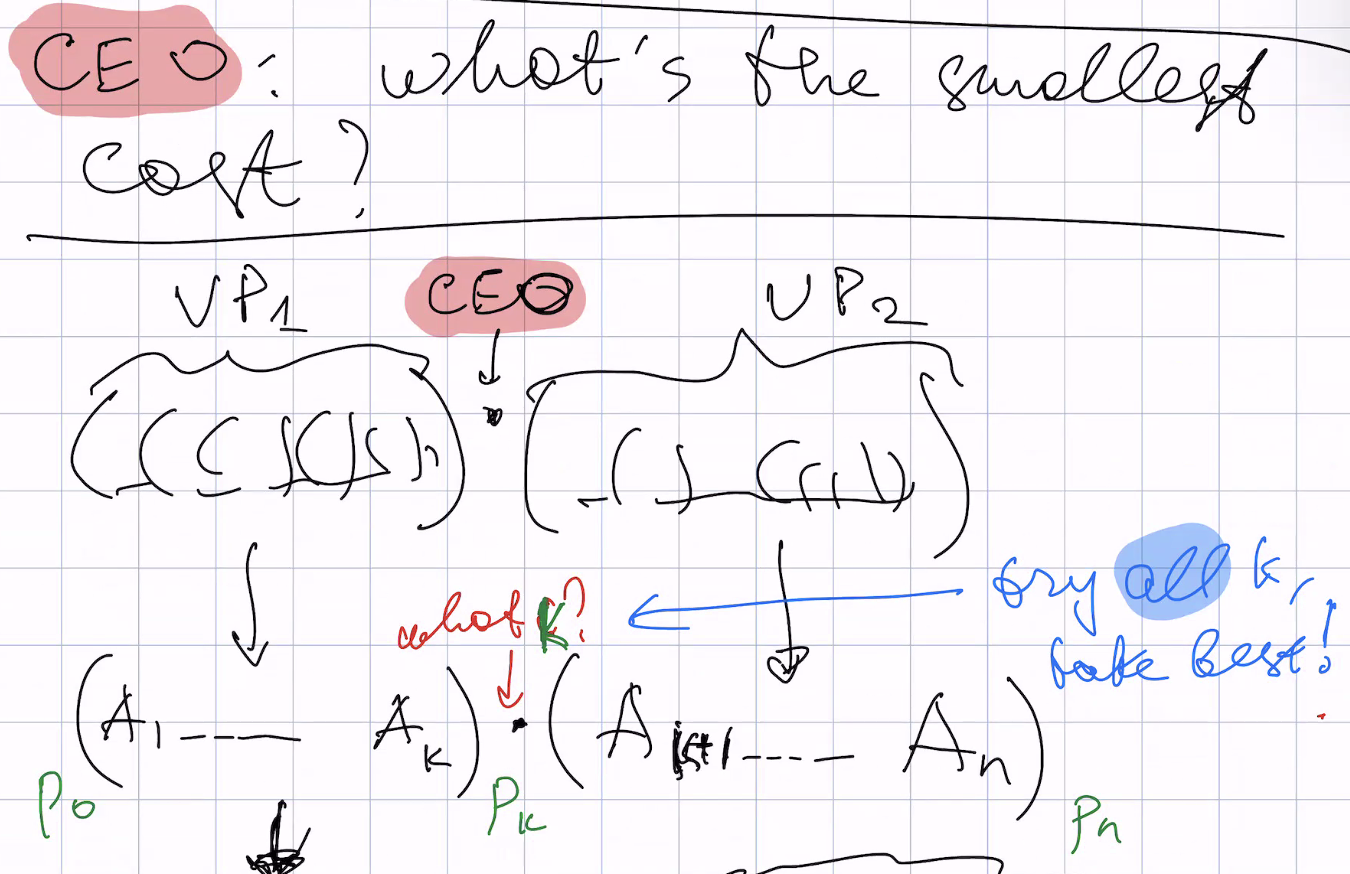 CEO: what's the smallest
cost?
VP1 CEO VP2
(((()()))) · (_() (()))
what k? ← try all k,
take best!
(A1 ----- Ak) · (Ak+1 ---- An)
P0 Pk Pn